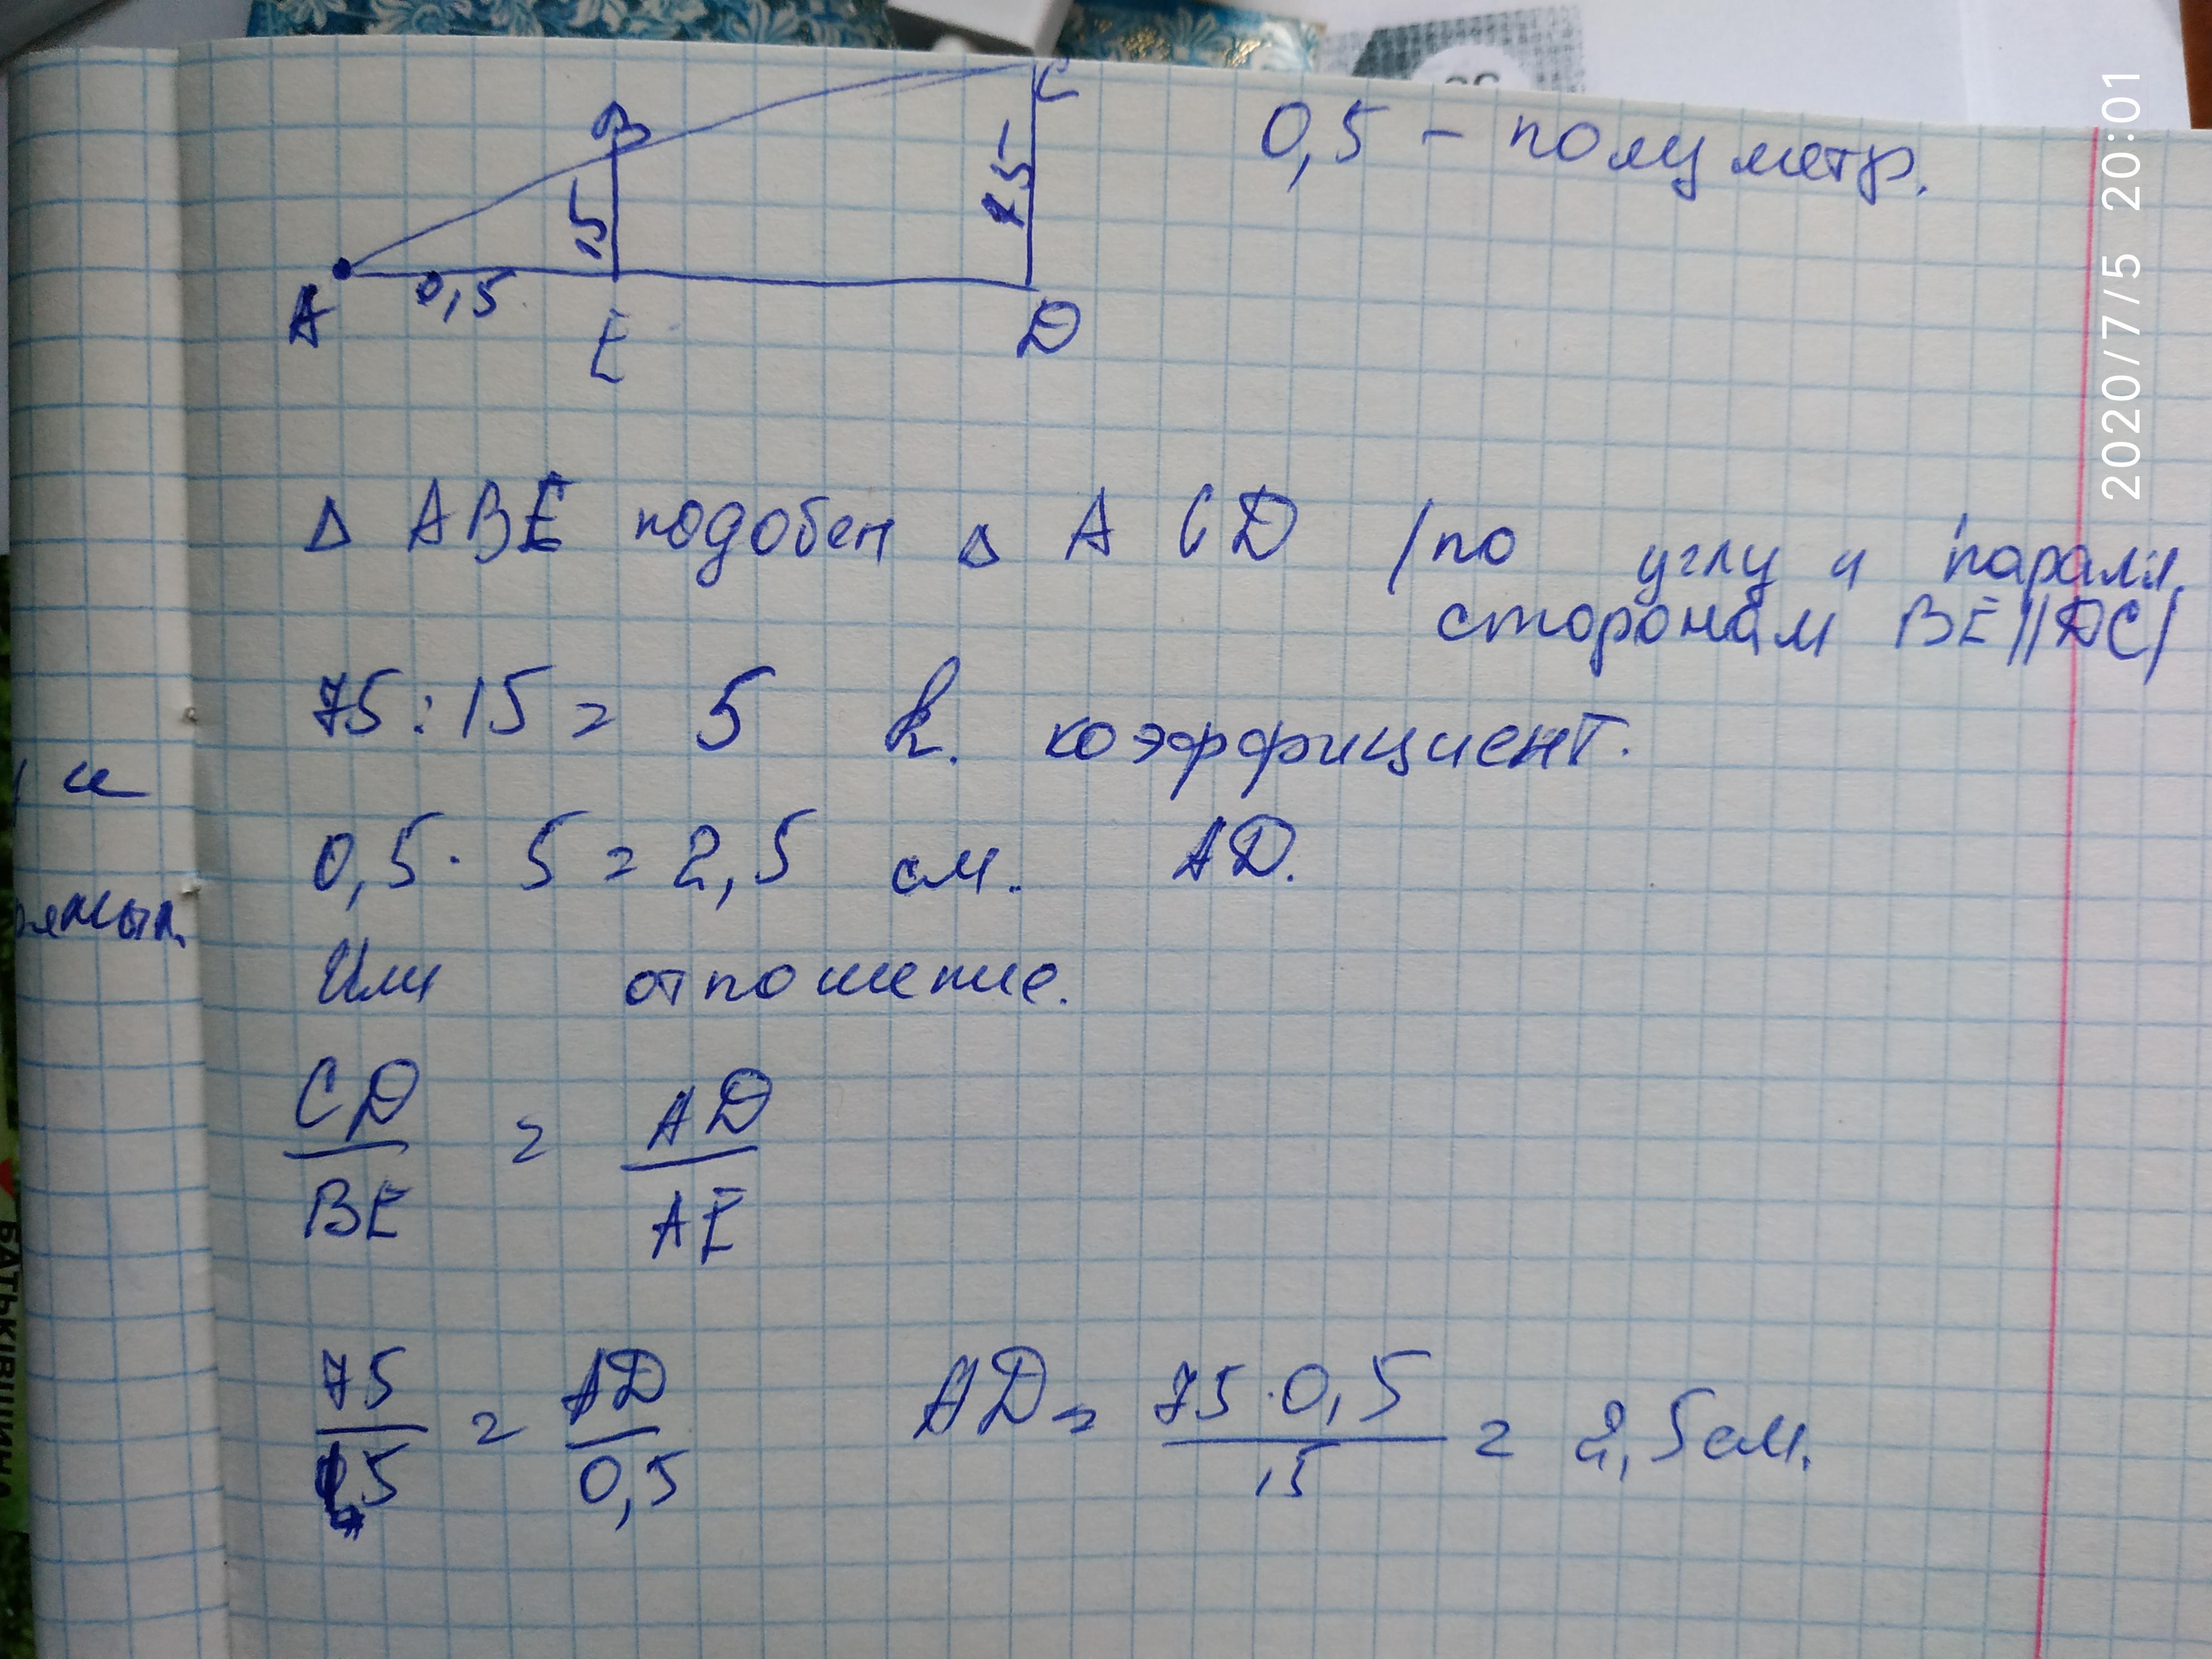 B
C
0,5 - полуметр.
15
75
A
0,5
E
D
Δ ABE подобен Δ ACD /по углу и паралл.
сторонам BE||DC/
75:15 = 5 k. коэффициент.
и
0,5 · 5 = 2,5 см. AD.
Или отношение.
CD/BE = AD/AE
75/15 = AD/0,5 AD = 75·0,5/15 = 2,5 см.
БАТЬКІВЩИНА
2020/7/5 20:01